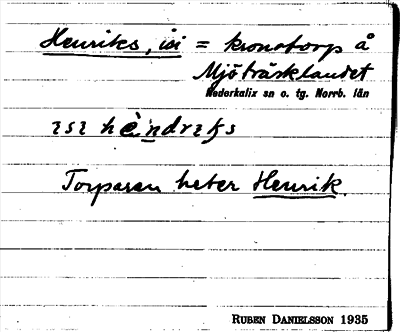 Henriks, isi = kronotorp å
Mjöträsklandet
Nederkalix sn o. tg. Norrb. län
ısı hèndrıks
Torparen heter Henrik.
RUBEN DANIELSSON 1935